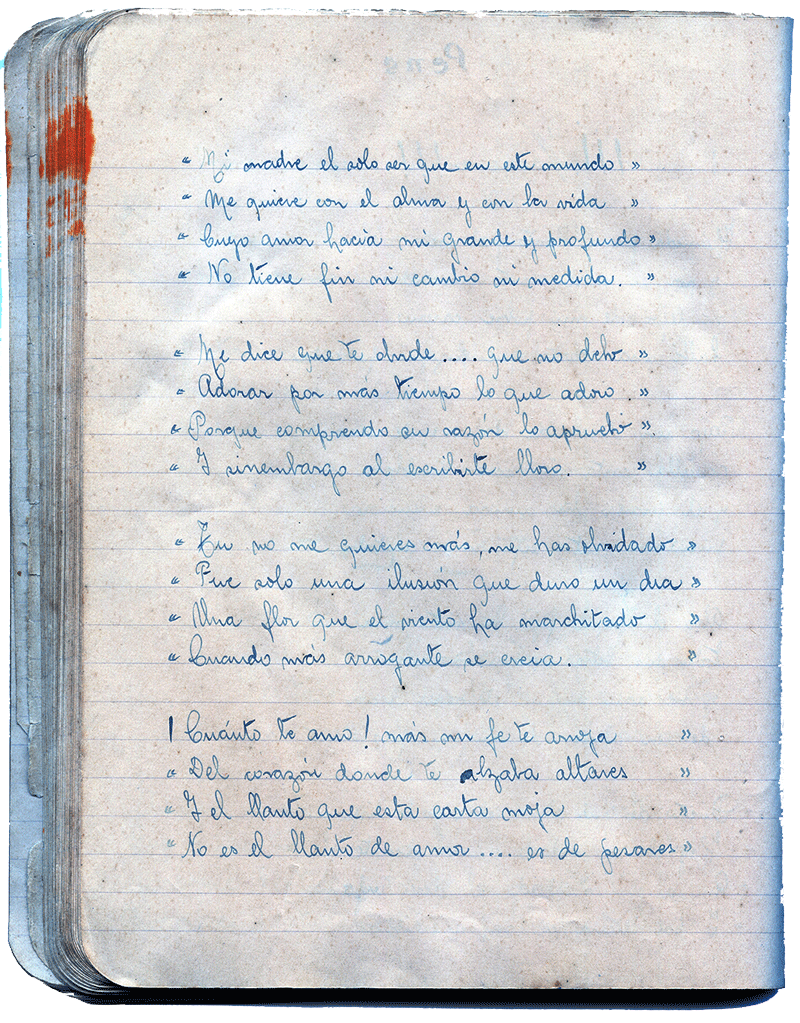 " Mi madre el solo ser que en este mundo "
" Me quiere con el alma y con la vida "
" Cuyo amor hacia mi grande y profundo "
" No tiene fin ni cambio ni medida. "
" Me dice que te olvide .... que no debo "
" Adorar por más tiempo lo que adoro. "
" Porque comprendo su razón lo apruebo ".
" Y sinembargo al escribirte lloro. "
" Tu no me quieres más, me has olvidado "
" Fue solo una ilusión que duro un dia "
" Una flor que el viento ha marchitado "
" Cuando más arrogante se creia. "
! Cuánto te amo ! más mi fe te arroja "
" Del corazón donde te alzaba altares "
" Y el llanto que esta carta moja "
" No es el llanto de amor .... es de pesares "